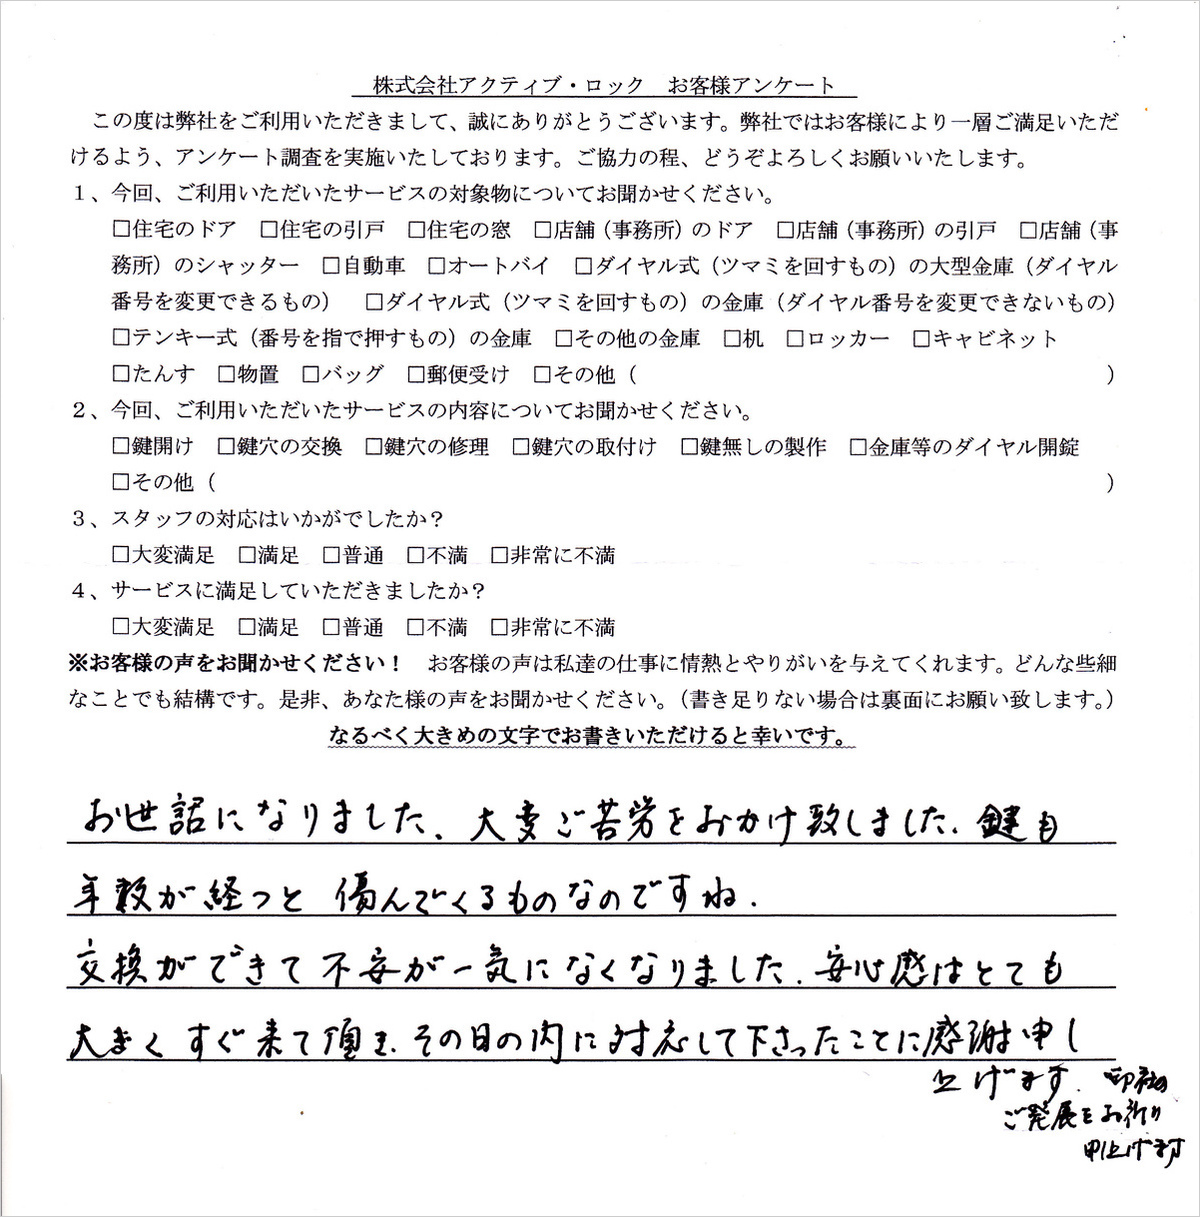 株式会社アクティブ・ロック　お客様アンケート
この度は弊社をご利用いただきまして、誠にありがとうございます。弊社ではお客様により一層ご満足いただ
けるよう、アンケート調査を実施いたしております。ご協力の程、どうぞよろしくお願いいたします。
１、今回、ご利用いただいたサービスの対象物についてお聞かせください。
□住宅のドア　□住宅の引戸　□住宅の窓　□店舗（事務所）のドア　□店舗（事務所）の引戸　□店舗（事
務所）のシャッター　□自動車　□オートバイ　□ダイヤル式（ツマミを回すもの）の大型金庫（ダイヤル
番号を変更できるもの）　□ダイヤル式（ツマミを回すもの）の金庫（ダイヤル番号を変更できないもの）
□テンキー式（番号を指で押すもの）の金庫　□その他の金庫　□机　□ロッカー　□キャビネット
□たんす　□物置　□バッグ　□郵便受け　□その他（　　　　　　　　　　　　　　　　　　　　　　）
２、今回、ご利用いただいたサービスの内容についてお聞かせください。
□鍵開け　□鍵穴の交換　□鍵穴の修理　□鍵穴の取付け　□鍵無しの製作　□金庫等のダイヤル開錠
□その他（　　　　　　　　　　　　　　　　　　　　　　　　　　　　　　　　　　　　　　　　　　）
３、スタッフの対応はいかがでしたか？
□大変満足　□満足　□普通　□不満　□非常に不満
４、サービスに満足していただきましたか？
□大変満足　□満足　□普通　□不満　□非常に不満
※お客様の声をお聞かせください！　お客様の声は私達の仕事に情熱とやりがいを与えてくれます。どんな些細
なことでも結構です。是非、あなた様の声をお聞かせください。（書き足りない場合は裏面にお願い致します。）
なるべく大きめの文字でお書きいただけると幸いです。
お世話になりました。大変ご苦労をおかけ致しました。鍵も
年数が経つと傷んでくるものなのですね。
交換ができて不安が一気になくなりました。安心感はとても
大きくすぐ来て頂き、その日の内に対応して下さったことに感謝申し
上げます。御社の
ご発展をお祈り
申上げます